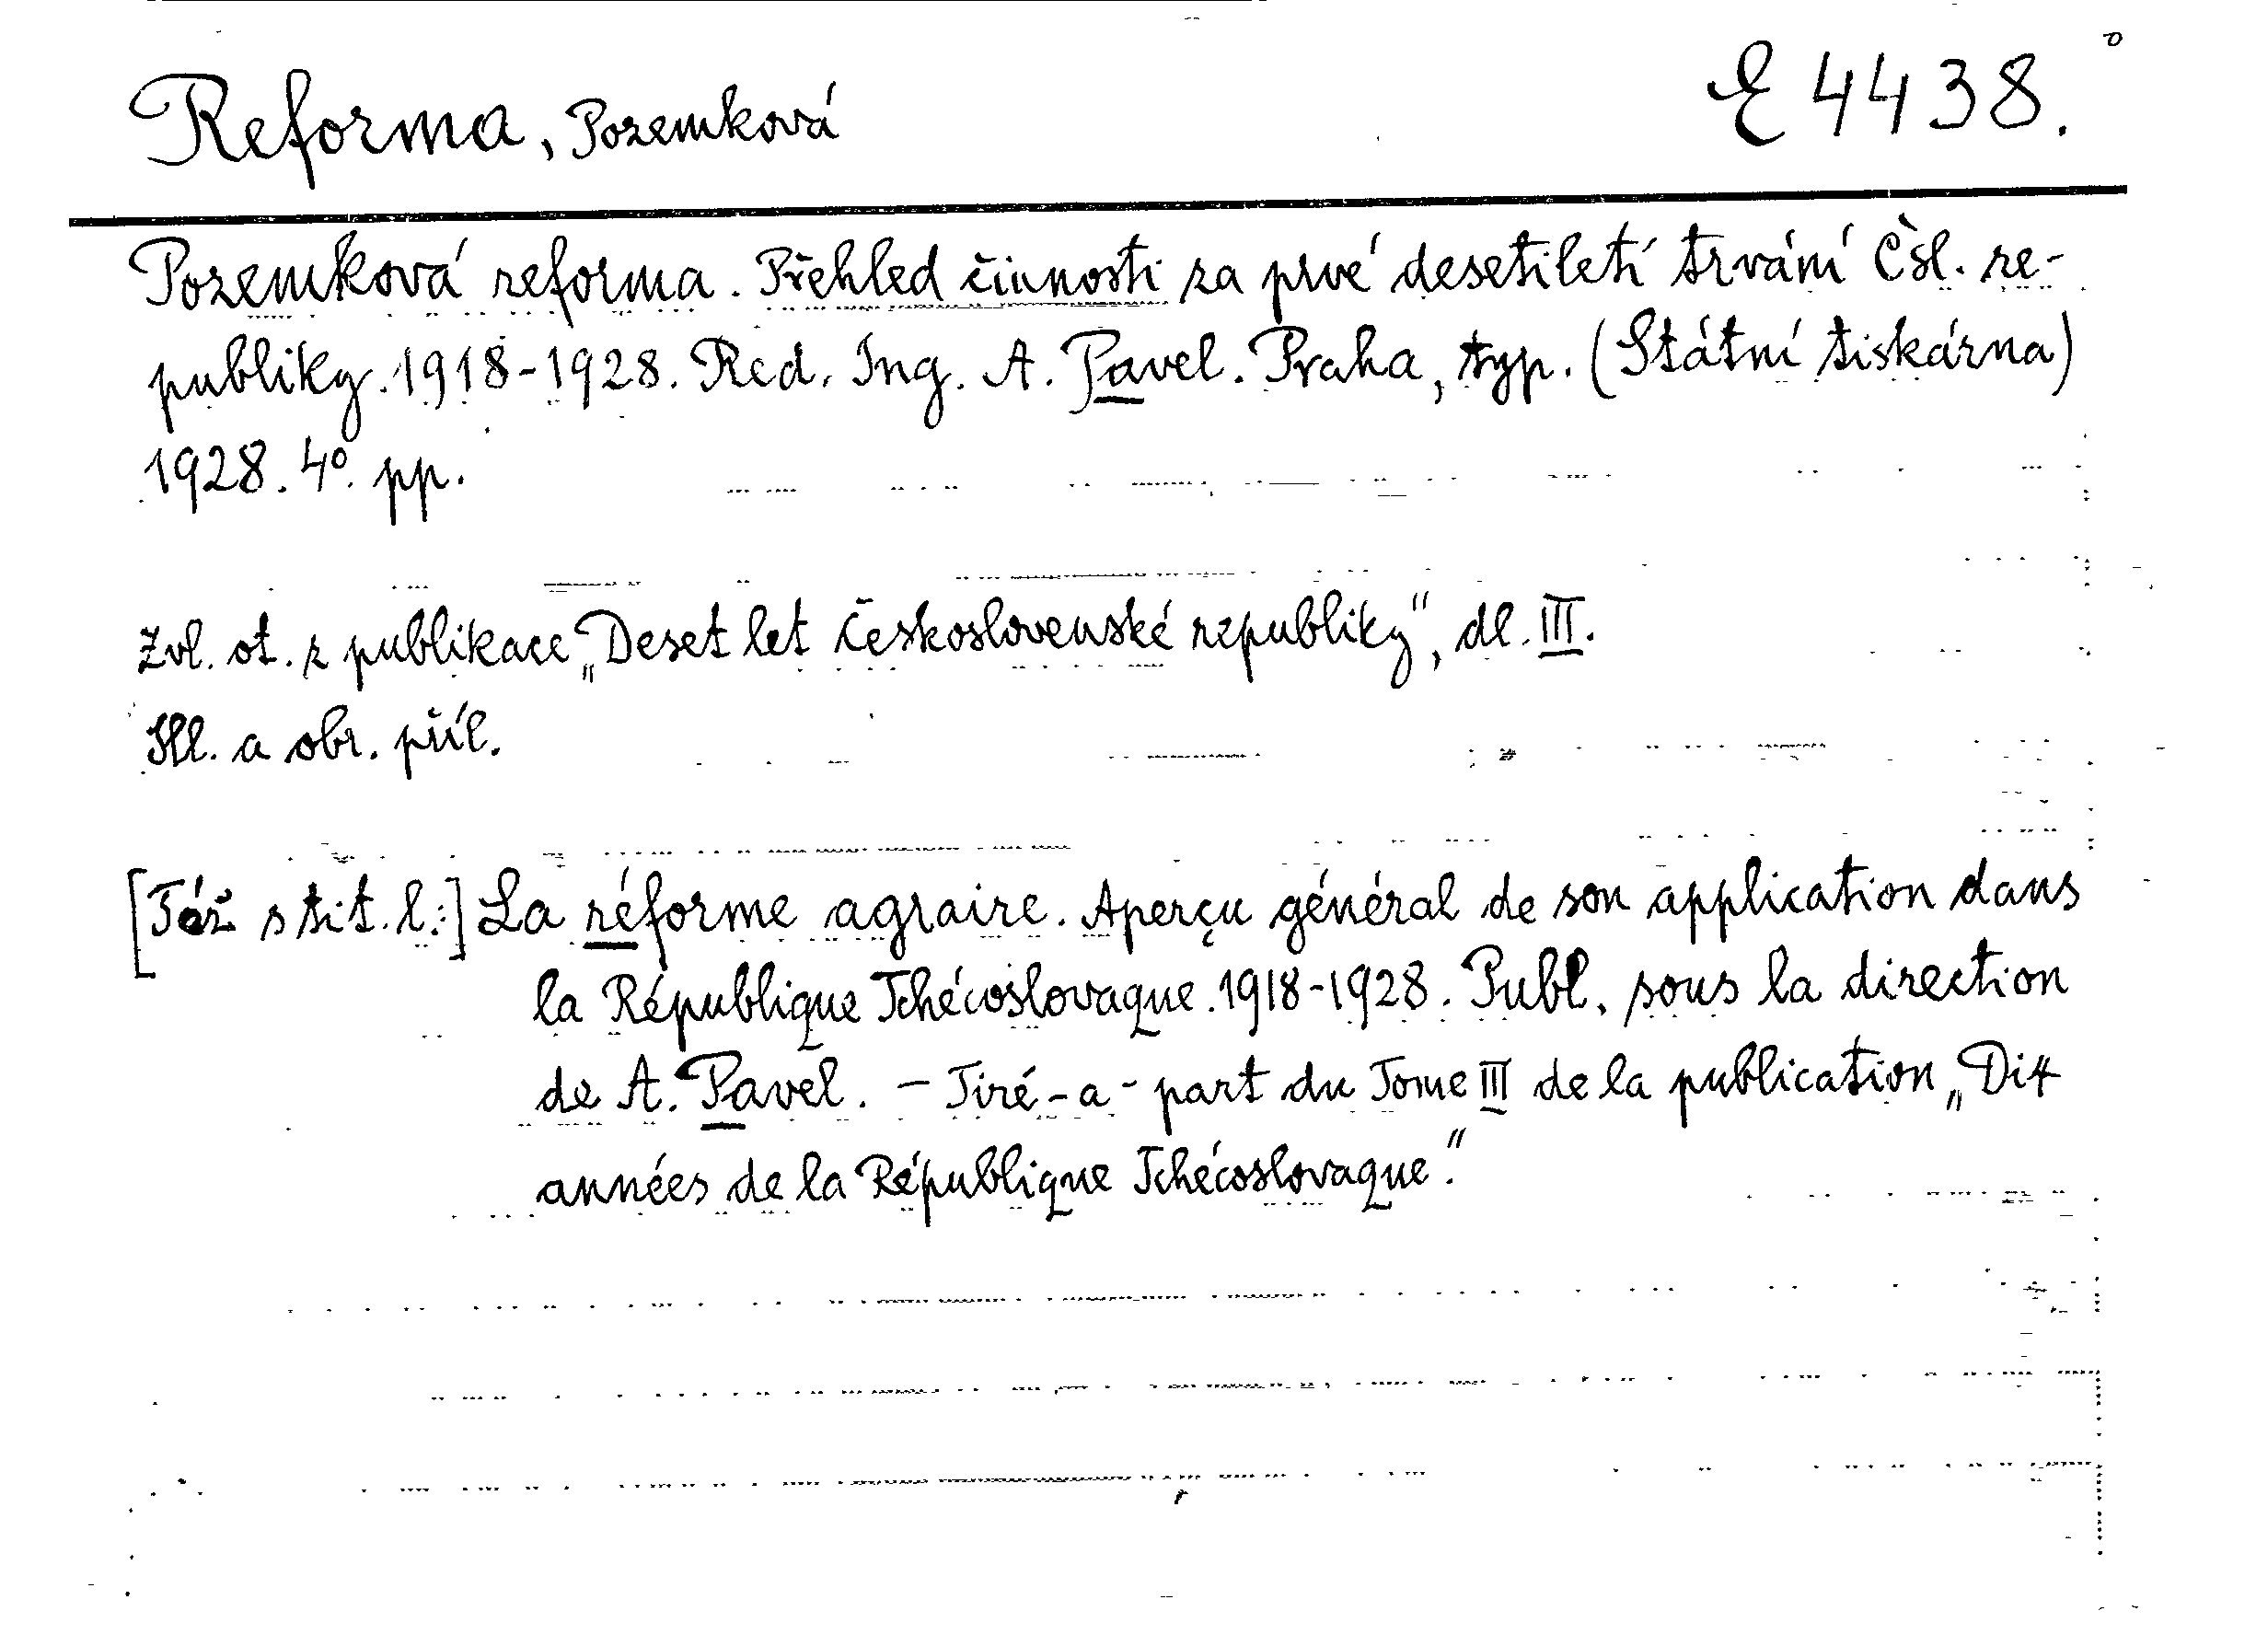 Reforma, Pozemková
E 4438.
Pozemková reforma. Přehled činnosti za prvé desetiletí trvání Čsl. re-
publiky. 1918-1928. Red. Ing. A. Pavel. Praha, typ. (Státní tiskárna)
1928. 4° pp.
Zvl. ot. z publikace „Deset let Československé republiky“, dl. III.
Ill. a obr. příl.
[Též s tit. l.:] La réforme agraire. Aperçu général de son application dans
la République Tchécoslovaque. 1918-1928. Publ. sous la direction
de A. Pavel. – Tiré-a-part du Tome III de la publication „Dix
années de la République Tchécoslovaque.“